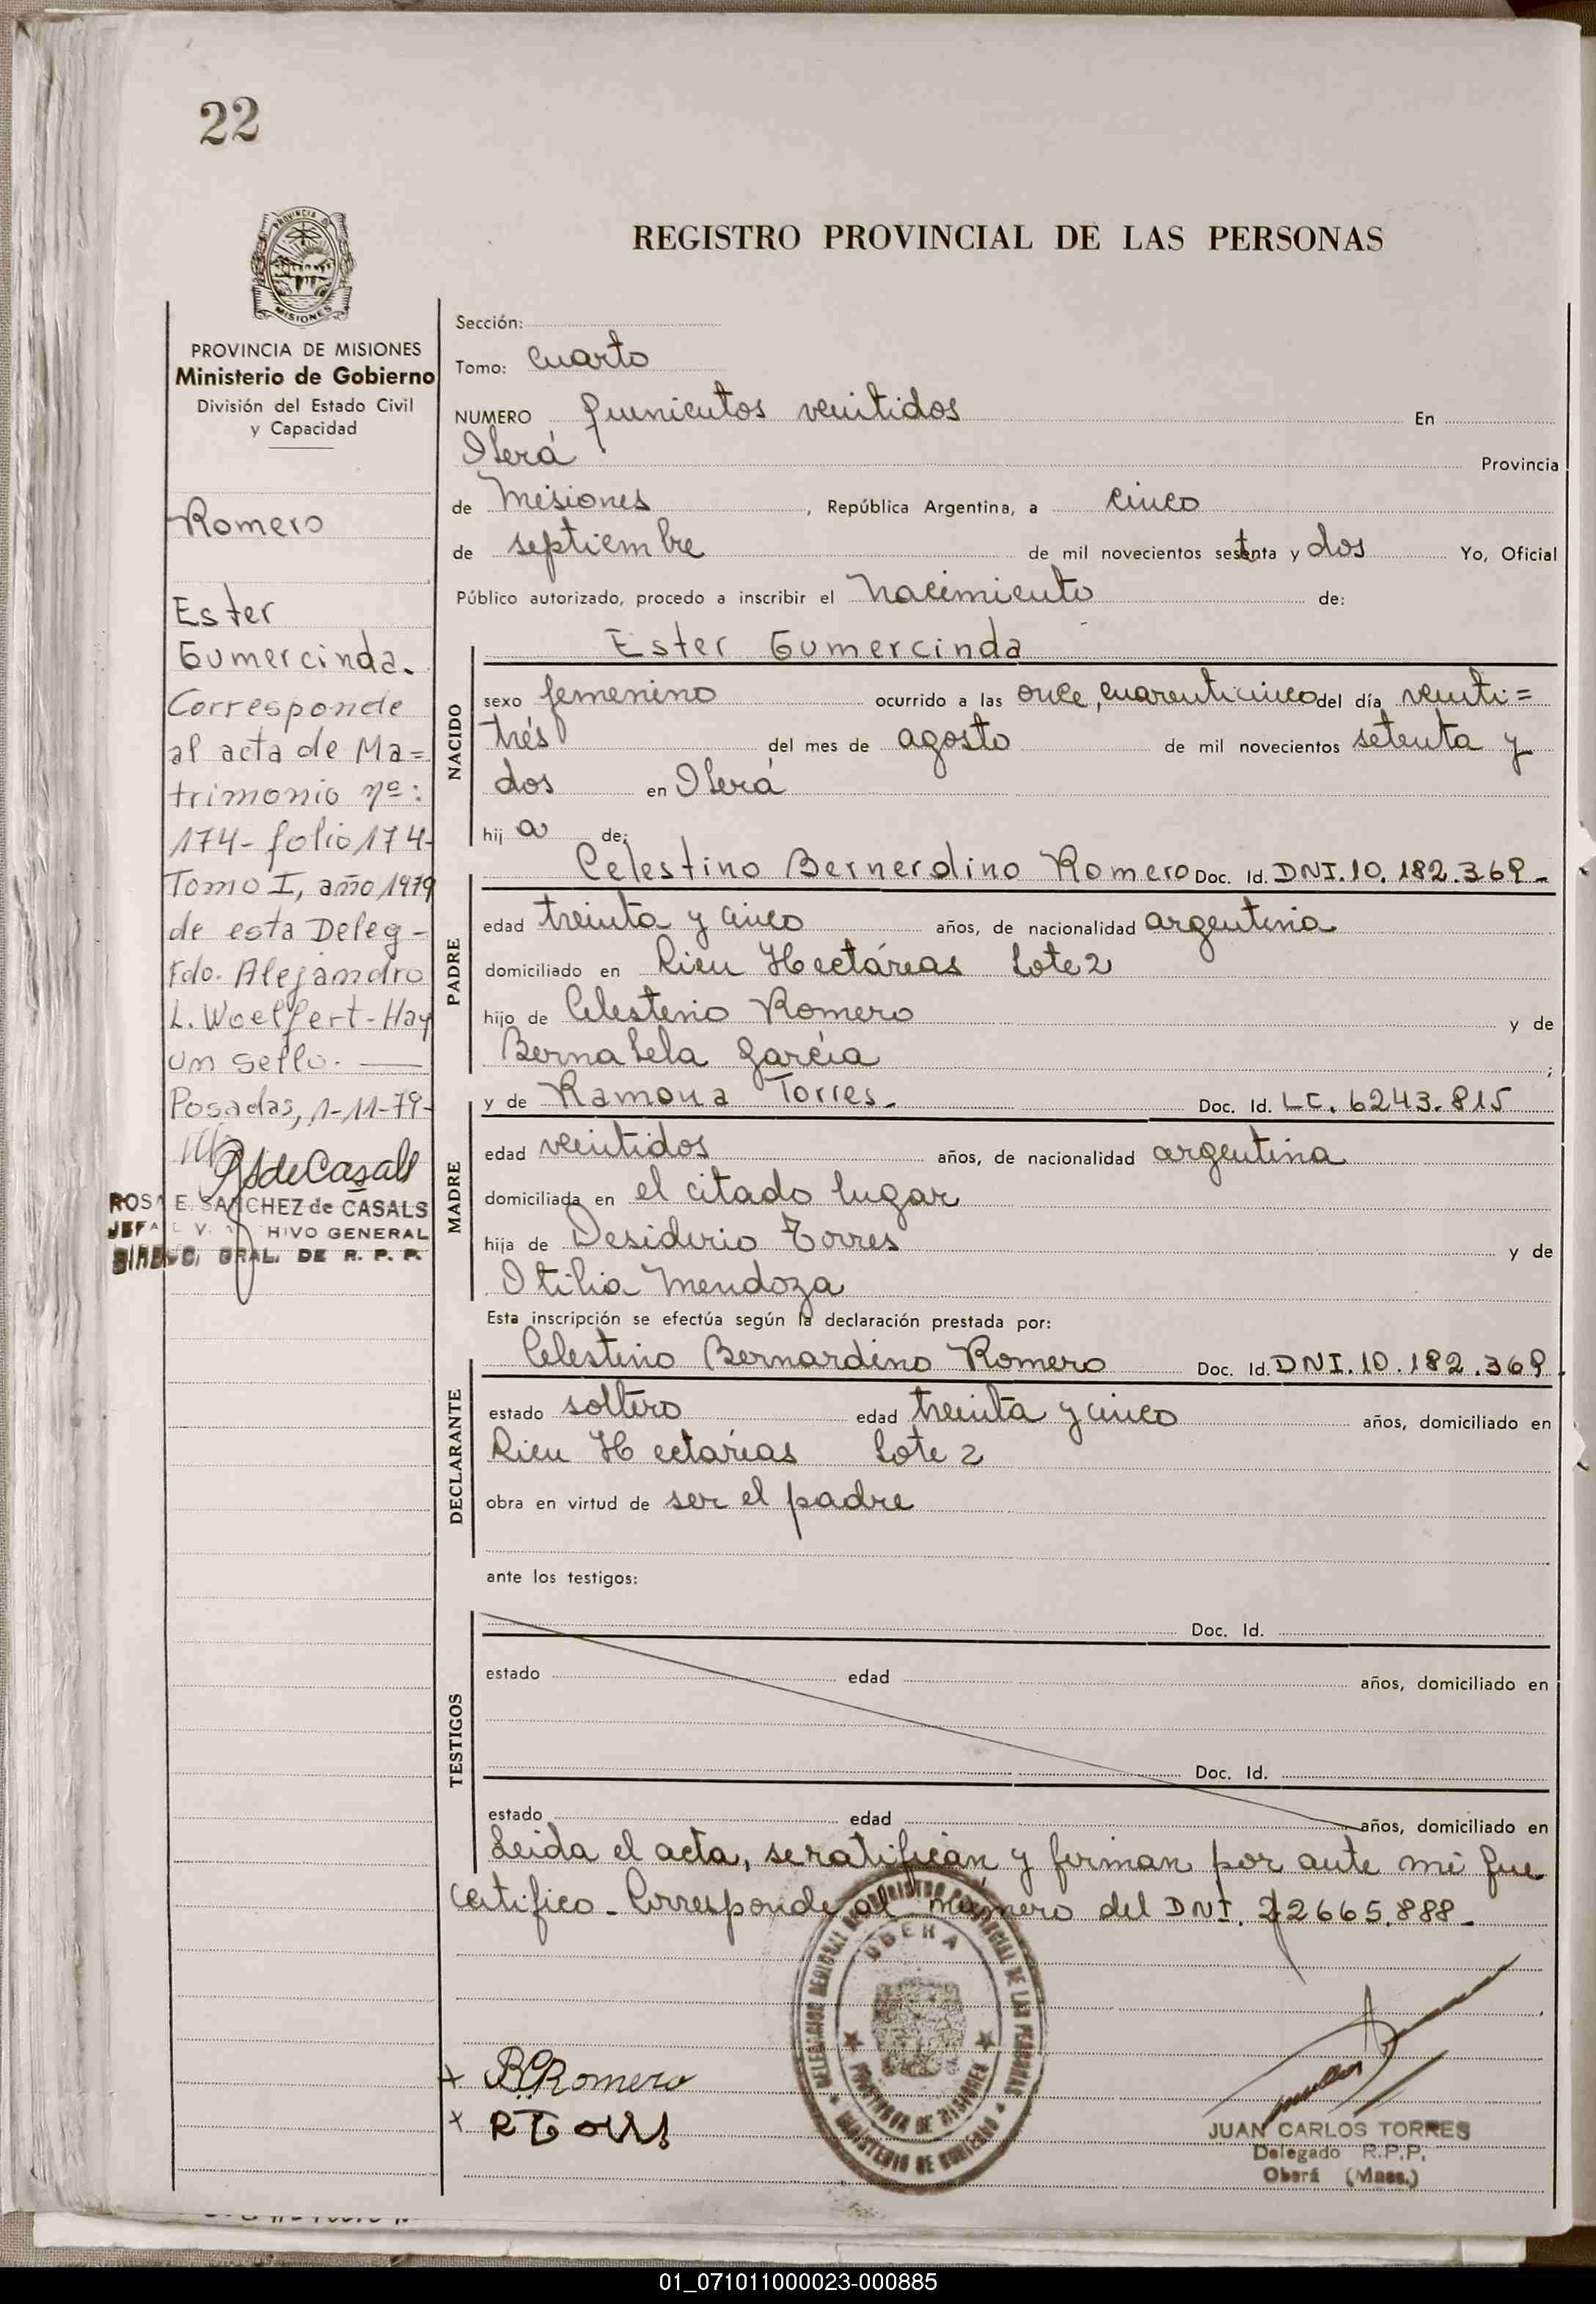 22
PROVINCIA DE
MISIONES
PROVINCIA DE MISIONES
Ministerio de Gobierno
División del Estado Civil
y Capacidad
Romero
Ester
Gumercinda.
Corresponde
al acta de Ma=
trimonio nº:
174- folio 174-
Tomo I, año 1979
de esta Deleg-
Fdo. Alejandro
L. Woelfert-Hay
un sello.
Posadas, 1-11-79-
RSdeCasals
ROSA E. SANCHEZ de CASALS
JEFA HIVO GENERAL
GRAL. DE R. P. P.
REGISTRO PROVINCIAL DE LAS PERSONAS
Sección:
Tomo: Cuarto
NUMERO Quinientos veintidos En
Oberá Provincia
de Misiones, República Argentina, a cinco
de septiembre de mil novecientos setenta y dos Yo, Oficial
Público autorizado, procedo a inscribir el Nacimiento de:
NACIDO
Ester Gumercinda
sexo femenino ocurrido a las once, cuarenticinco del día veinti=
trés del mes de agosto de mil novecientos setenta y
dos en Oberá
hij a de:
PADRE
Celestino Bernerdino Romero Doc. Id. DNI. 10. 182. 369-
edad treinta y cinco años, de nacionalidad argentina
domiciliado en Cien Hectáreas Lote 2
hijo de Celestino Romero y de
Bernabela García ;
MADRE
y de Ramona Torres. Doc. Id. LC. 6243.815
edad veintidos años, de nacionalidad argentina
domiciliada en el citado lugar
hija de Desiderio Torres y de
Otilia Mendoza
Esta inscripción se efectúa según la declaración prestada por:
DECLARANTE
Celestino Bernardino Romero Doc. Id. DNI. 10. 182. 369.
estado soltero edad treinta y cinco años, domiciliado en
Cien Hectáreas Lote 2
obra en virtud de ser el padre
ante los testigos:
TESTIGOS
Doc. Id.
estado edad años, domiciliado en
Doc. Id.
estado edad años, domiciliado en
Leida el acta, se ratifican y firman por ante mi que
certifico. Corresponde al número del DNI. 22665.888-
DELEGACION REGIONAL REGISTRO PROVINCIAL DE LAS PERSONAS
OBERA
PROVINCIA DE MISIONES
MINISTERIO DE GOBIERNO
x B.C Romero
x R Torres
JUAN CARLOS TORRES
Delegado R.P.P.
Oberá (Mnes.)
01_071011000023-000885